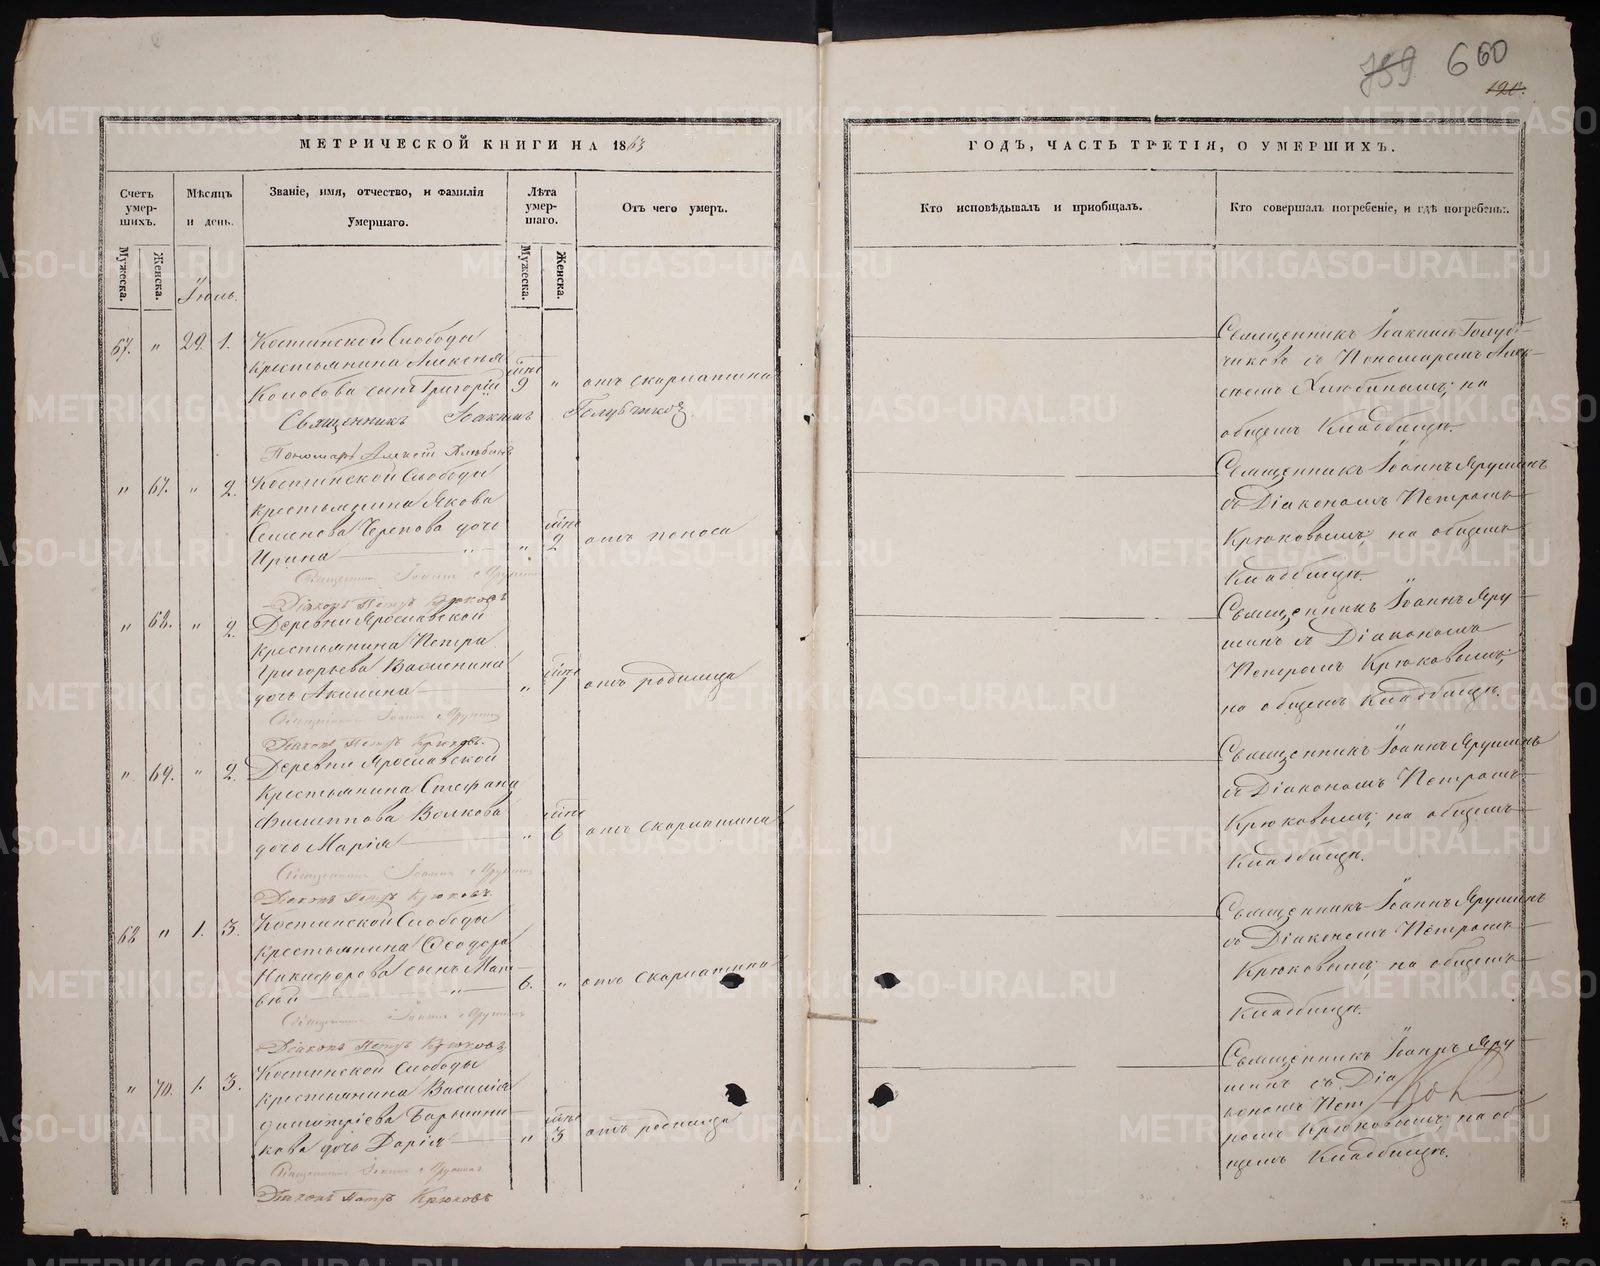 739 660
МЕТРИЧЕСКОЙ КНИГИ НА 1863
Счетъ умер-шихъ.
Мѣсяцъ и день.
Званіе, имя, отчество, и фамилія Умершаго.
Лѣта умер-шаго.
Отъ чего умеръ.
Мужеска.
Женска.
Мужеска.
Женска.
Іюль.
67. " 29. 1. Костинской Слободы
крестьянина Алексѣя
Колобова сынъ Григорій 9 " отъ скарлатина
Священникъ Іоакимъ Голубчиковъ
Пономарь Алексѣй Хлюбинъ
" 67. " 2. Костинской Слободы
крестьянина Якова
Семенова Черепова дочь
Ирина " 2 отъ поноса
Священникъ Іоаннъ Ярушинъ
Діаконъ Петръ Крюковъ
" 68. " 2. Деревни Ярославской
крестьянина Петра
Григорьева Василенина
дочь Акилина " 1 отъ родимца
Священникъ Іоаннъ Ярушинъ
Діаконъ Петръ Крюковъ.
" 69. " 2. Деревни Ярославской
крестьянина Стефана
Филиппова Волкова
дочь Марія " 6 отъ скарлатина
Священникъ Іоаннъ Ярушинъ
Діаконъ Петръ Крюковъ.
68 " 1. 3. Костинской Слободы
крестьянина Ѳеодора
Никифорова сынъ Мат-
вѣй 6. " отъ скарлатина
Священникъ Іоаннъ Ярушинъ
Діаконъ Петръ Крюковъ
" 70. 1. 3. Костинской Слободы
крестьянина Василія
Димитріева
кова дочь Дарія " 3 отъ родимца
Священникъ Іоаннъ Ярушинъ
Діаконъ Петръ Крюковъ
ГОДЪ, ЧАСТЬ ТРЕТІЯ, О УМЕРШИХЪ.
Кто исповѣдывалъ и пріобщалъ.
Кто совершалъ погребеніе, и гдѣ погребены.
Священникъ Іоакимъ Голуб-
чиковъ съ Пономаремъ Алек-
сѣемъ Хлюбинымъ; на
общемъ Кладбищѣ.
Священникъ Іоаннъ Ярушинъ
съ Діакономъ Петромъ
Крюковымъ; на общемъ
Кладбищѣ.
Священникъ Іоаннъ Яру-
шинъ съ Діакономъ
Петромъ Крюковымъ;
на общемъ Кладбищѣ.
Священникъ Іоаннъ Ярушинъ
съ Діакономъ Петромъ
Крюковымъ; на общемъ
Кладбищѣ.
Священникъ Іоаннъ Ярушинъ
съ Діакономъ Петромъ
Крюковымъ; на общемъ
Кладбищѣ.
Священникъ Іоаннъ Яру-
шинъ съ Діа
кономъ Пет
ромъ Крюковымъ; на об
щемъ Кладбищѣ.
METRIKI.GASO-URAL.RU